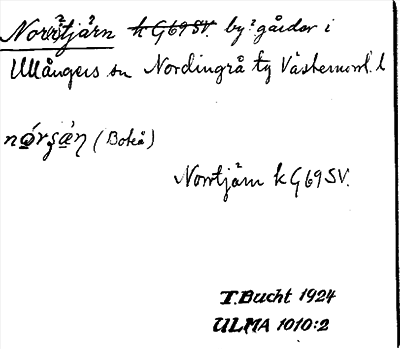 Norrtjärn k G69SV. by? gårdar i
Ullångers sn Nordingrå tg Västernorrl. l
(Boteå)
Norrtjärn k G69SV.
T. Bucht 1924
ULMA 1010:2